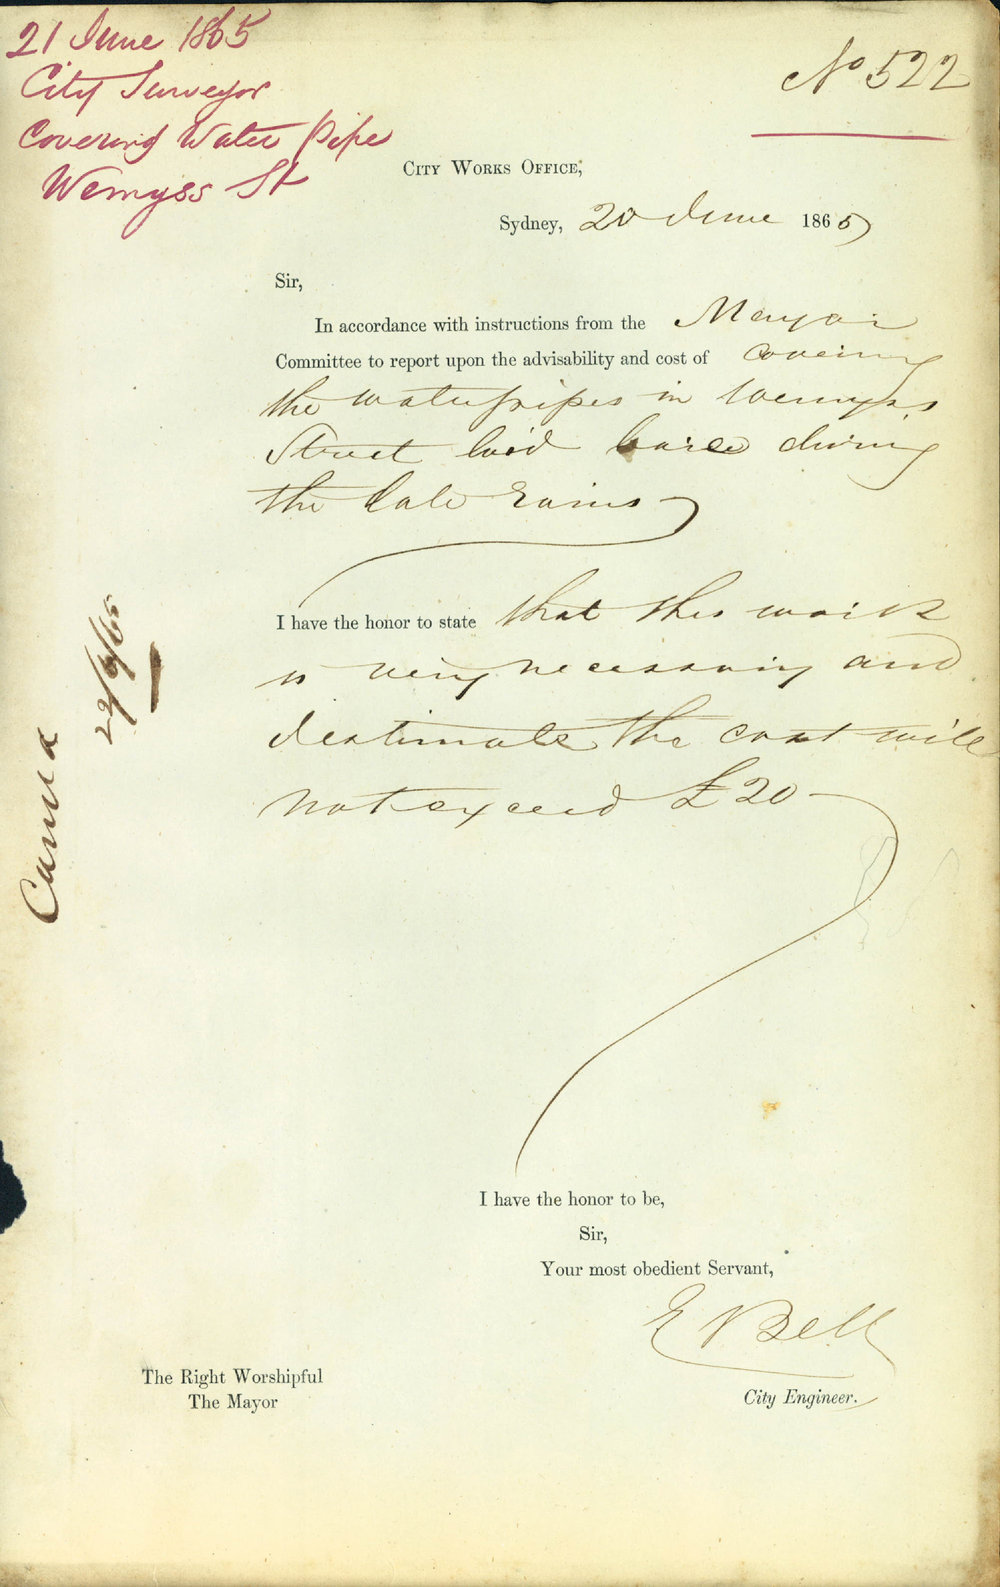 21 June 1865
City Surveyor
Covering Water Pipe
Wemyss St
No 522
City Works Office,
Sydney, 20 June 1865
Sir,
In accordance with instructions from the Mayor
Committee to report upon the advisability and cost of covering
the waterpipes in Wemyss
Street laid bare during
the late rains
I have the honor to state that this work
is very necessary and
I estimate the cost will
not exceed £20
22/6/65
I have the honor to be,
Sir,
Your most obedient Servant,
E Bell
City Engineer.
The Right Worshipful
The Mayor